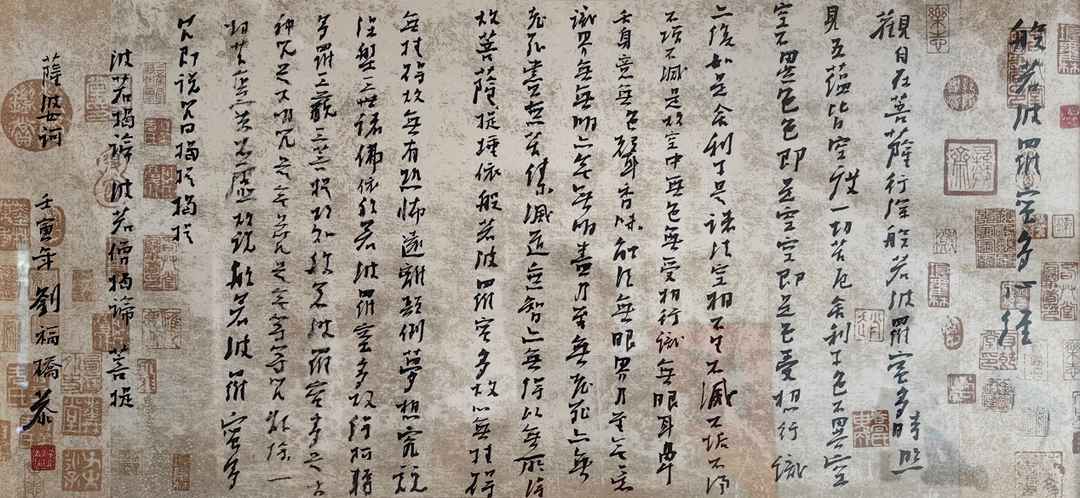 般若波羅蜜多心經
觀自在菩薩行深般若波羅蜜多時照
見五蘊皆空度一切苦厄舍利子色不異空
空不異色色即是空空即是色受想行識
亦復如是舍利子是諸法空相不生不滅不垢不淨
不垢不滅是故空中無色無受想行識無眼耳鼻
舌身意無色聲香味觸法無眼界乃至無意
識界無無明亦無無明盡乃至無老死亦無
老死盡無苦集滅道無智亦無得以無所得
故菩薩提埵依般若波羅蜜多故心無挂礙
無挂礙故無有恐怖遠離顛倒夢想究竟
涅槃三世諸佛依般若波羅蜜多故得阿耨
多羅三藐三菩提故知般若波羅蜜多是大
神咒是大明咒是無上咒是無等等咒能除一
切苦真實不虛故說般若波羅蜜多
咒即說咒曰揭諦揭諦
波若揭諦波若僧揭諦菩提
薩婆訶
壬寅年劉福橋恭